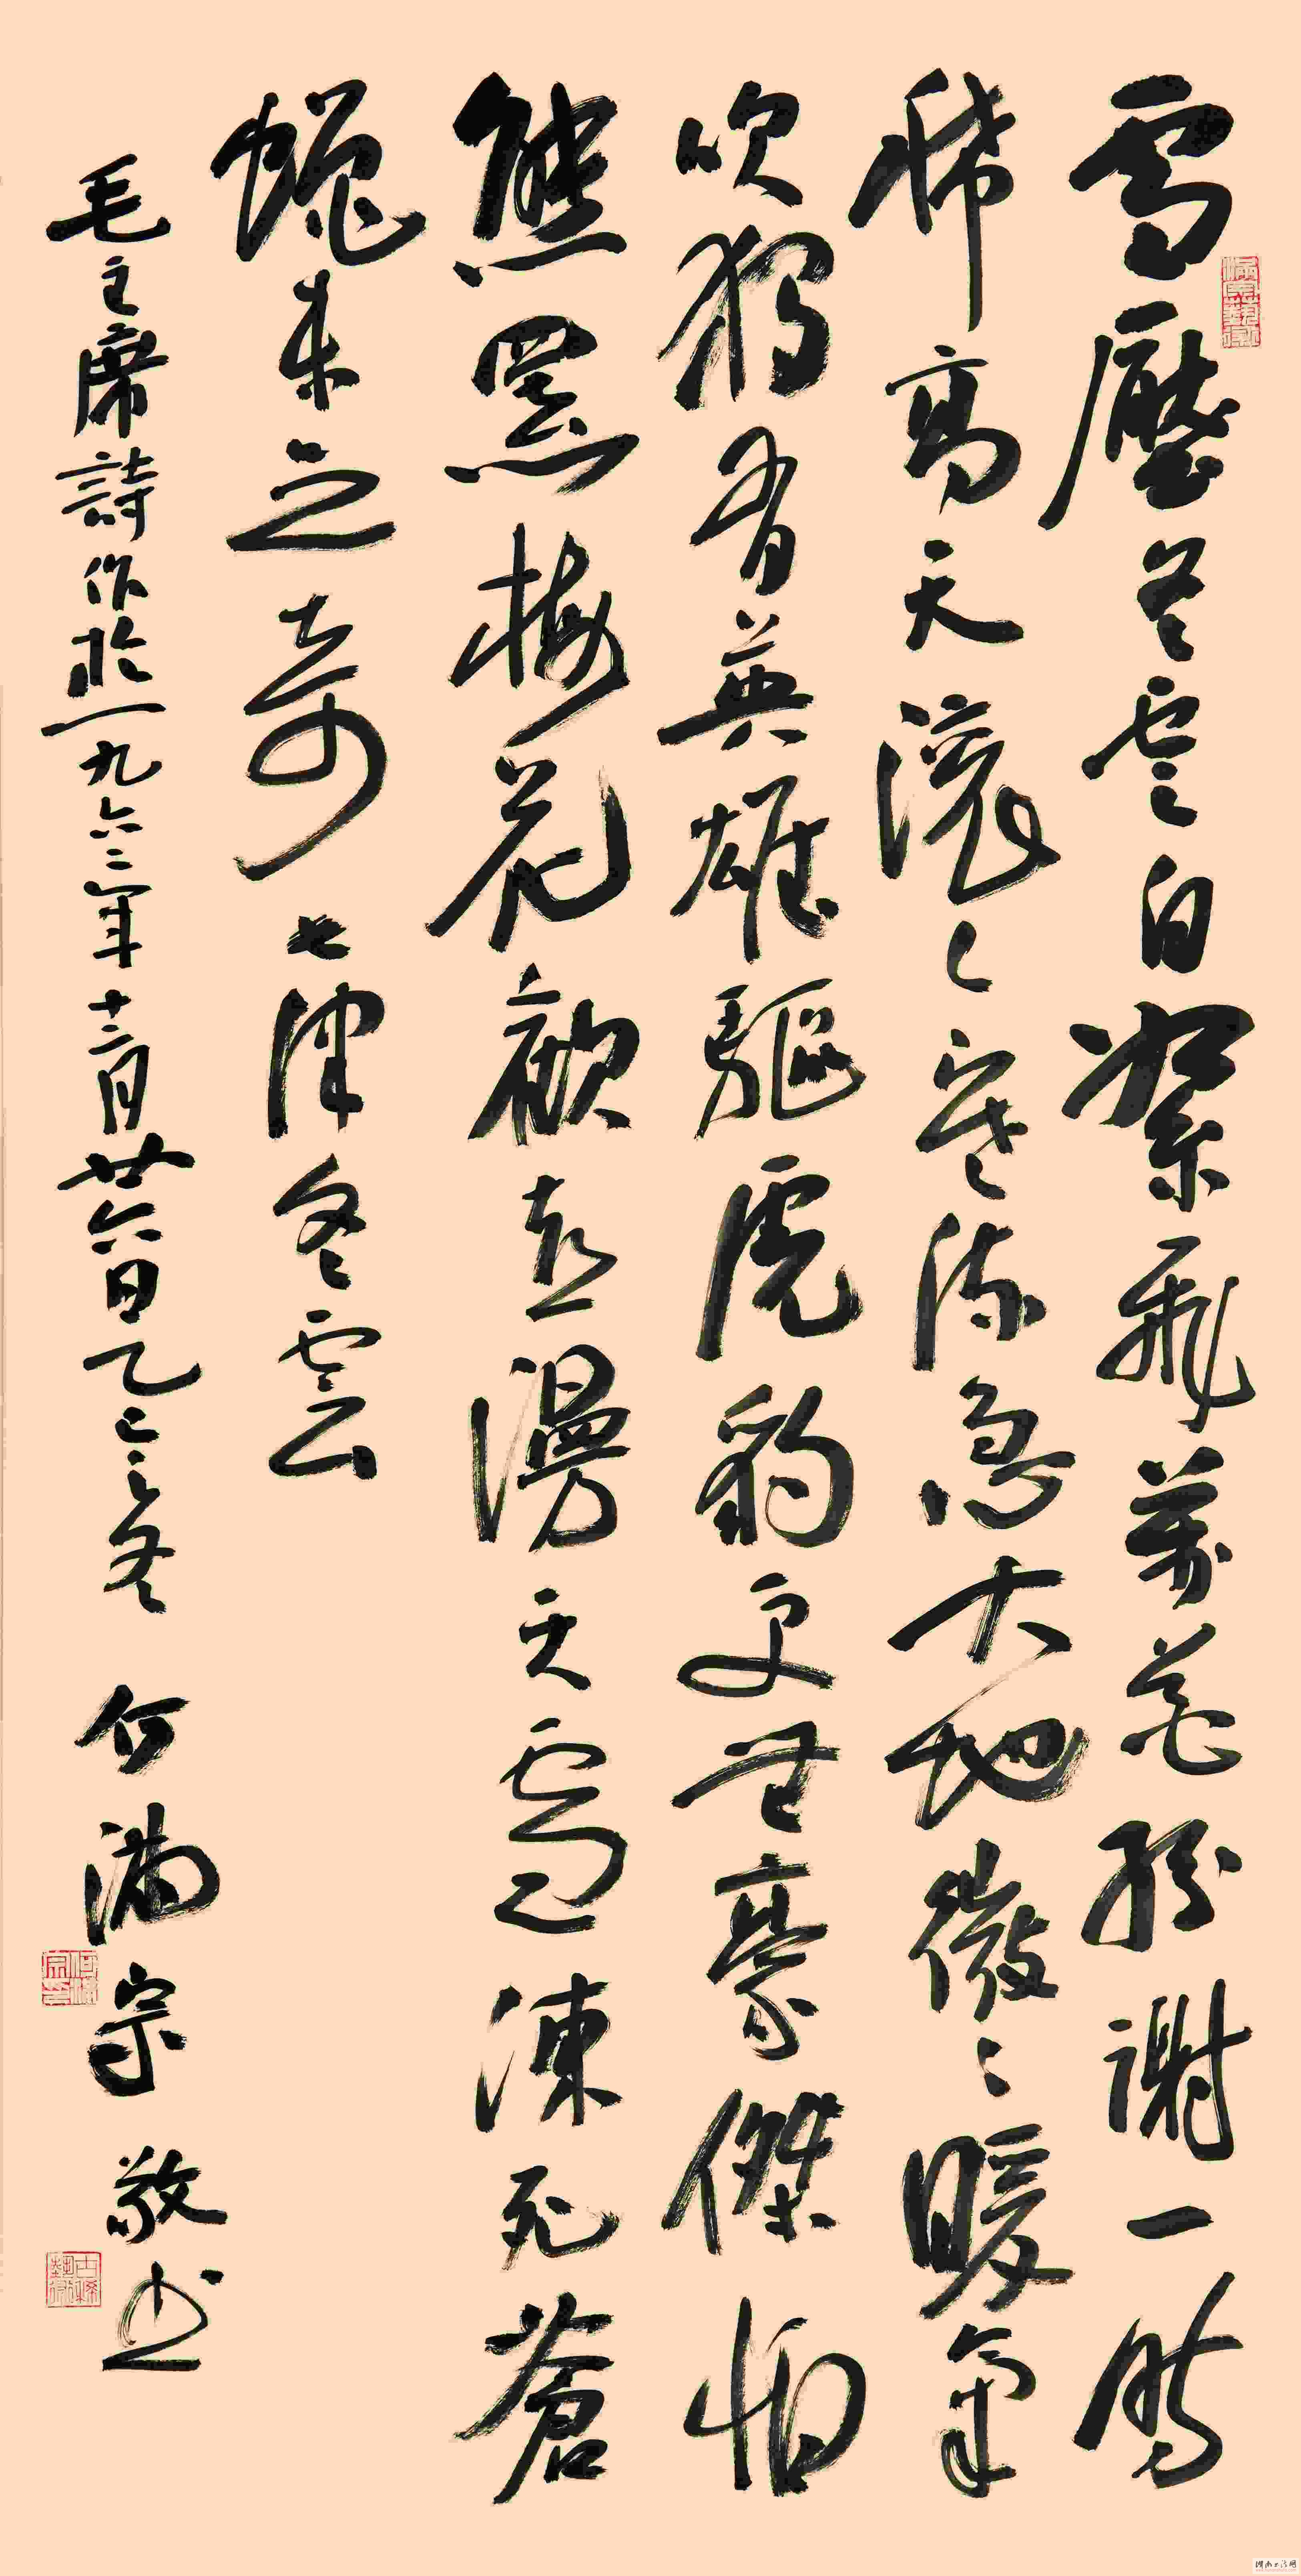 雪壓冬雲白絮飛萬花紛謝一時
稀高天滾々寒流急大地微々暖氣
吹獨有英雄驅虎豹更無豪傑怕
熊羆梅花歡喜漫天雪凍死蒼
蠅未足奇 七律冬雲
毛主席詩作於一九六二年十二月廿六日乙巳之冬 何滿宗敬書